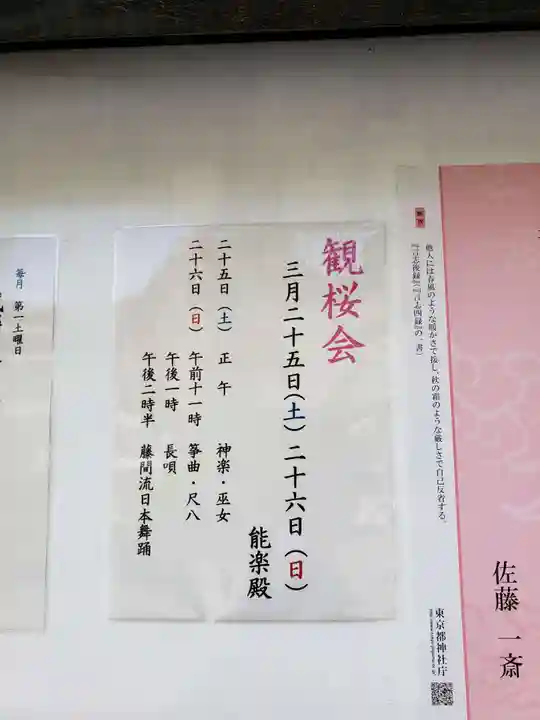 他人には春風のような暖かさで接し、秋の霜のような厳しさで自己反省する。
佐藤 一斎
東京都神社庁
観桜会
三月二十五日(土)二十六日(日)
能楽殿
二十五日(土) 正午 神楽・巫女
二十六日(日) 午前十一時 箏曲・尺八
午後一時 長唄
午後二時半 藤間流日本舞踊
毎月 第一土曜日